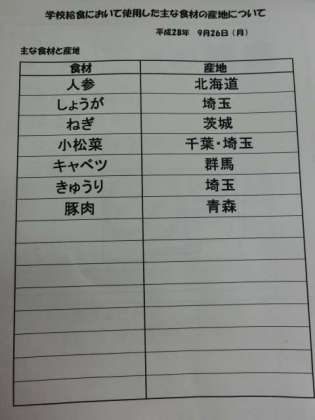 学校給食において使用した主な食材の産地について
平成28年 9月26日（月）
主な食材と産地
食材 産地
人参 北海道
しょうが 埼玉
ねぎ 茨城
小松菜 千葉・埼玉
キャベツ 群馬
きゅうり 埼玉
豚肉 青森